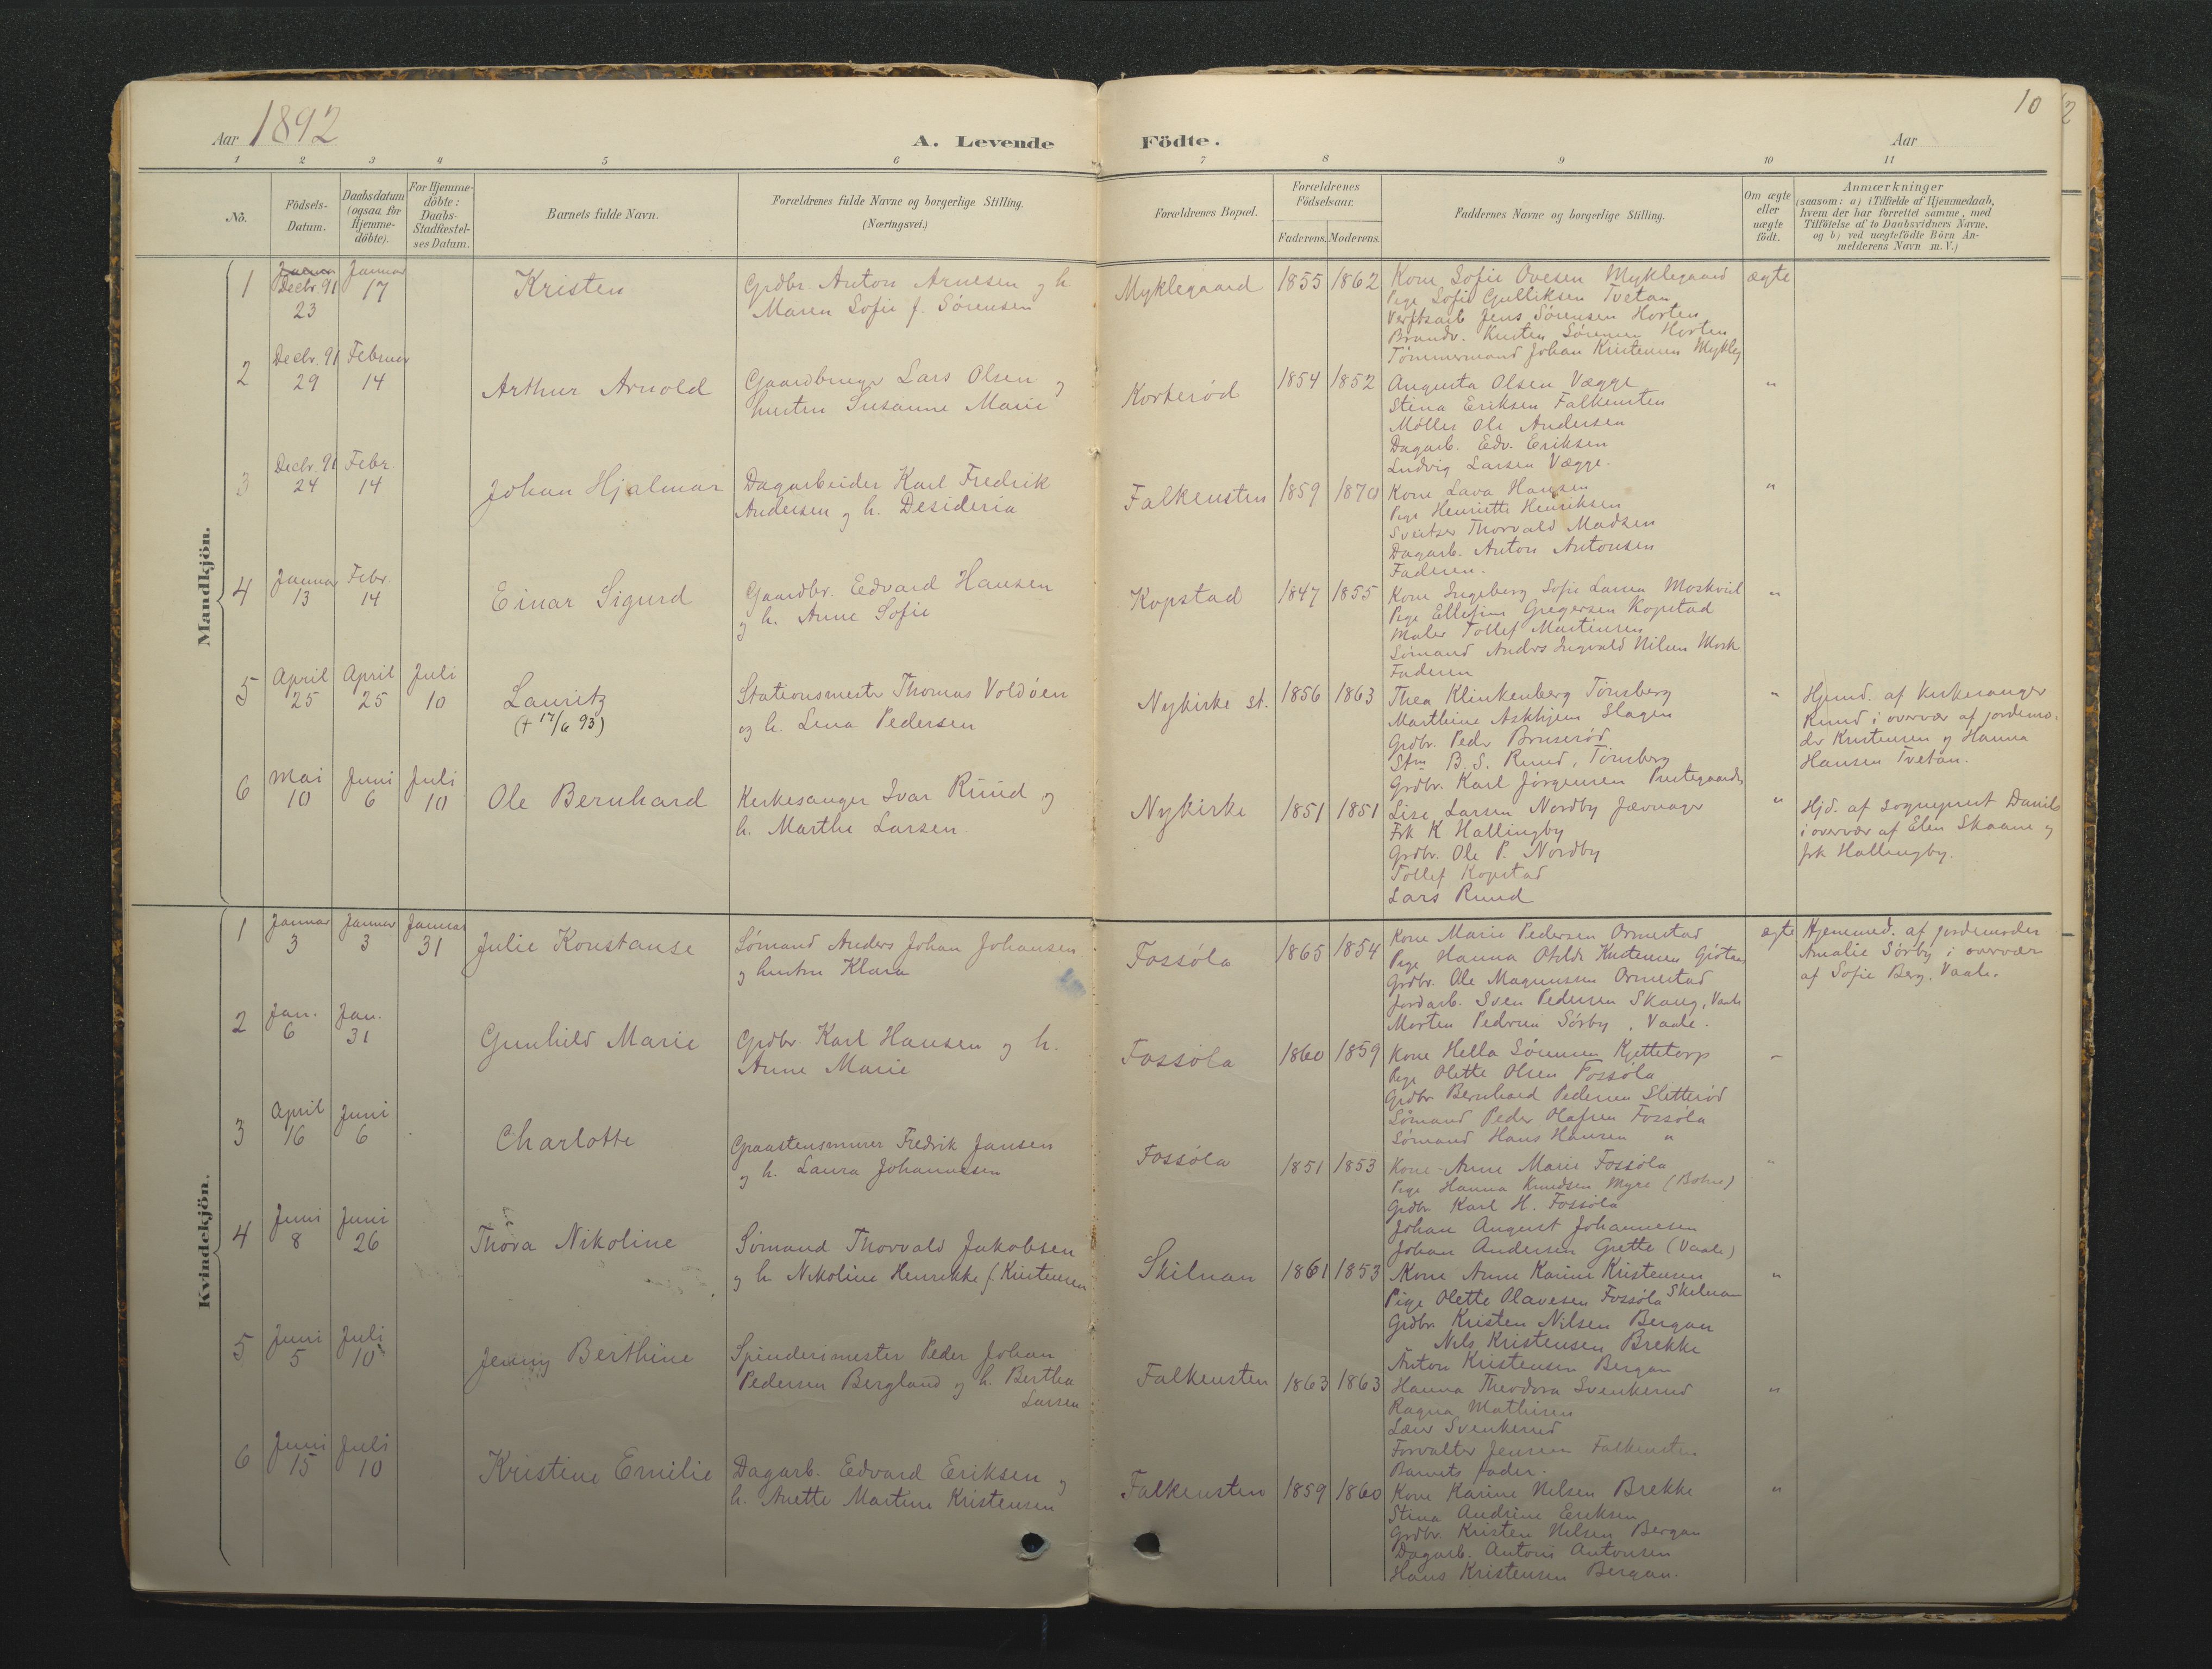 Aar 1892
A. Levende Födte.
Aar
10
1 2 3 4 5 6 7 8 9 10 11
No.
Födsels-
Datum.
Daabsdatum
(ogsaa for
Hjemme-
döbte).
For Hjemme-
döbte:
Daabs-
Stadfæstel-
ses Datum.
Barnets fulde Navn.
Forældrenes fulde Navne og borgerlige Stilling.
(Næringsvei.)
Forældrenes Bopæl.
Forældrenes
Födselsaar.
Faderens. Moderens.
Faddernes Navne og borgerlige Stilling.
Om ægte
eller
uægte
födt.
Anmærkninger
(saasom: a) i Tilfælde af Hjemmedaab,
hvem der har forrettet samme, med
Tilföielse af to Daabsvidners Navne,
og b) ved uægtefödte Börn An-
melderens Navn m. V.)
Mandkjön.
1
Januar
Decbr. 91
23
Januar
17
Kristen
Grdbr Anton Arnesen og h.
Maren Sofie f. Sørensen
Myklegaard
1855
1862
Kone Sofie Ovesen Myklegaard
Pige Sofie Gulliksen Tvetan
Verftsarb Jens Sørensen Horten
Brandv. Kristen Sørensen Horten
Tømmermand Johan Kristensen Mykleg
ægte
2
Decbr. 91
29
Februar
14
Arthur Arnold
Gaardbruger Lars Olsen og
hustru Susanne Marie
Korterød
1854
1852
Augusta Olsen Vægge
Stina Eriksen Falkensten
Møller Ole Andersen
Dagarb. Edv. Eriksen
Ludvig Larsen Vægge.
"
3
Decbr. 91
24
Febr.
14
Johan Hjalmar
Dagarbeider Karl Fredrik
Andersen og h. Desideria
Falkensten
1859
1870
Kone Lava Hansen
Pige Henriette Henriksen
Sveitser Thorvald Madsen
Dagarb. Anton Antonsen
Faderen.
"
4
Januar
13
Febr.
14
Einar Sigurd
Gaardbr. Edvard Hansen
og h. Anne Sofie
Kopstad
1847
1855
Kone Ingeborg Sofie Larsen Moskvil
Pige Ellefine Gregersen Kopstad
Maler Tollef Martinsen
Sømand Anders Ingvald Nilsen Mosk
Faderen
"
5
April
25
April
25
Juli
10
Lauritz
(+ 17/6 93)
Stationsmester Thomas Voldøen
og h. Lena Pedersen
Nykirke st.
1856
1863
Thea Klinkenberg Tønsberg
Marthine Askhjem Slagen
Grdbr. Peder Bruserød
Stm B. S. Ruud, Tønsberg
Grdbr. Karl Jørgensen Prestegaarden
"
Hjemd. af Kirkesanger
Ruud i overvær af jordemo-
der Kristensen og Hanna
Hansen Tvetan.
6
Mai
10
Juni
6
Juli
10
Ole Bernhard
Kirkesanger Ivar Ruud og
h. Marthe Larsen
Nykirke
1851
1851
Lise Larsen Nordby Jævnager
Frk K Hallingby
Grdbr. Ole P. Nordby
Tollef Kopstad
Lars Ruud
"
Hjd. af sogneprest Daniels
i overvær af Elen Skaane og
frk Hallingby.
Kvindekjön.
1
Januar
3
Januar
3
Januar
31
Julie Konstanse
Sømand Anders Johan Johansen
og hustru Klara
Fossøla
1865
1854
Kone Marie Pedersen Ormestad
Pige Hanna Otilde Kristensen
Grdbr. Ole Magnussen Ormestad
Jordarb. Sven Pedersen Skaug, Vaale
Morten Pedersen Sørby, Vaale.
ægte
Hjemmed. af jordemoder
Amalie Sørby i overvær
af Sofie Berg. Vaale.
2
Jan.
6
Jan.
31
Gunhild Marie
Grdbr. Karl Hansen og h.
Anne Marie
Fossøla
1860
1859
Kone Hella Sørensen Kjettetorp
Pige Olette Olsen Fossøla
Grdbr Bernhard Pedersen Sletterød
Sømand Peder Olafsen Fossøla
Sømand Hans Hansen "
"
3
April
16
Juni
6
Charlotte
Graastensmurer Fredrik Jansen
og h. Laura Johannesen
Fossøla
1851
1853
Kone Anne Marie Fossøla
Pige Hanna Knudsen Myre (Botne)
Grdbr Karl H. Fossøla
Johan August Johannesen
Johan Andersen Grette (Vaale)
"
4
Juni
8
Juni
26
Thora Nikoline
Sømand Thorvald Jakobsen
og h. Nikoline Henrekke f. Kristensen
Skilnan
1861
1853
Kone Anne Karine Kristensen
Skilnan
Pige Olette Olavesen Fossøla
Grdbr. Kristen Nilsen Bergan
Nils Kristensen Brekke
Anton Kristensen Bergan
"
5
Juni
5
Juli
10
Jenny Berthine
Spinderimester Peder Johan
Pedersen Bergland og h. Bertha
Larsen
Falkensten
1863
1863
Hanna Theodora Svenkerud
Ragna Mathisen
Svenkerud
Forvalter Jensen Falkensten
Barnets fader.
"
6
Juni
15
Juli
10
Kristine Emilie
Dagarb. Edvard Eriksen og
h. Anette Martine Kristensen
Falkensten
1859
1860
Kone Karine Nilsen Brekke
Stina Andrine Eriksen
Grdbr. Kristen Nilsen Bergan
Dagarb. Anton Antonsen
Hans Kristensen Bergan.
"